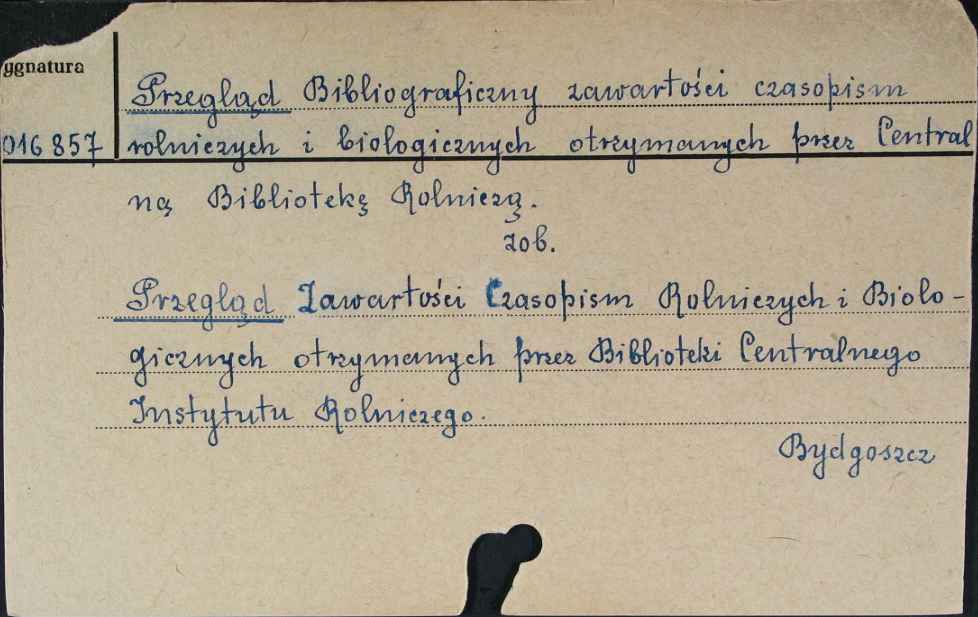 ygnatura
Przegląd Bibliograficzny zawartości czasopism
016857 rolniczych i biologicznych otrzymanych przez Central
ną Bibliotekę Rolniczą.
zob.
Przegląd Zawartości Czasopism Rolniczych i Biolo-
gicznych otrzymanych przez Biblioteki Centralnego
Instytutu Rolniczego.
Bydgoszcz